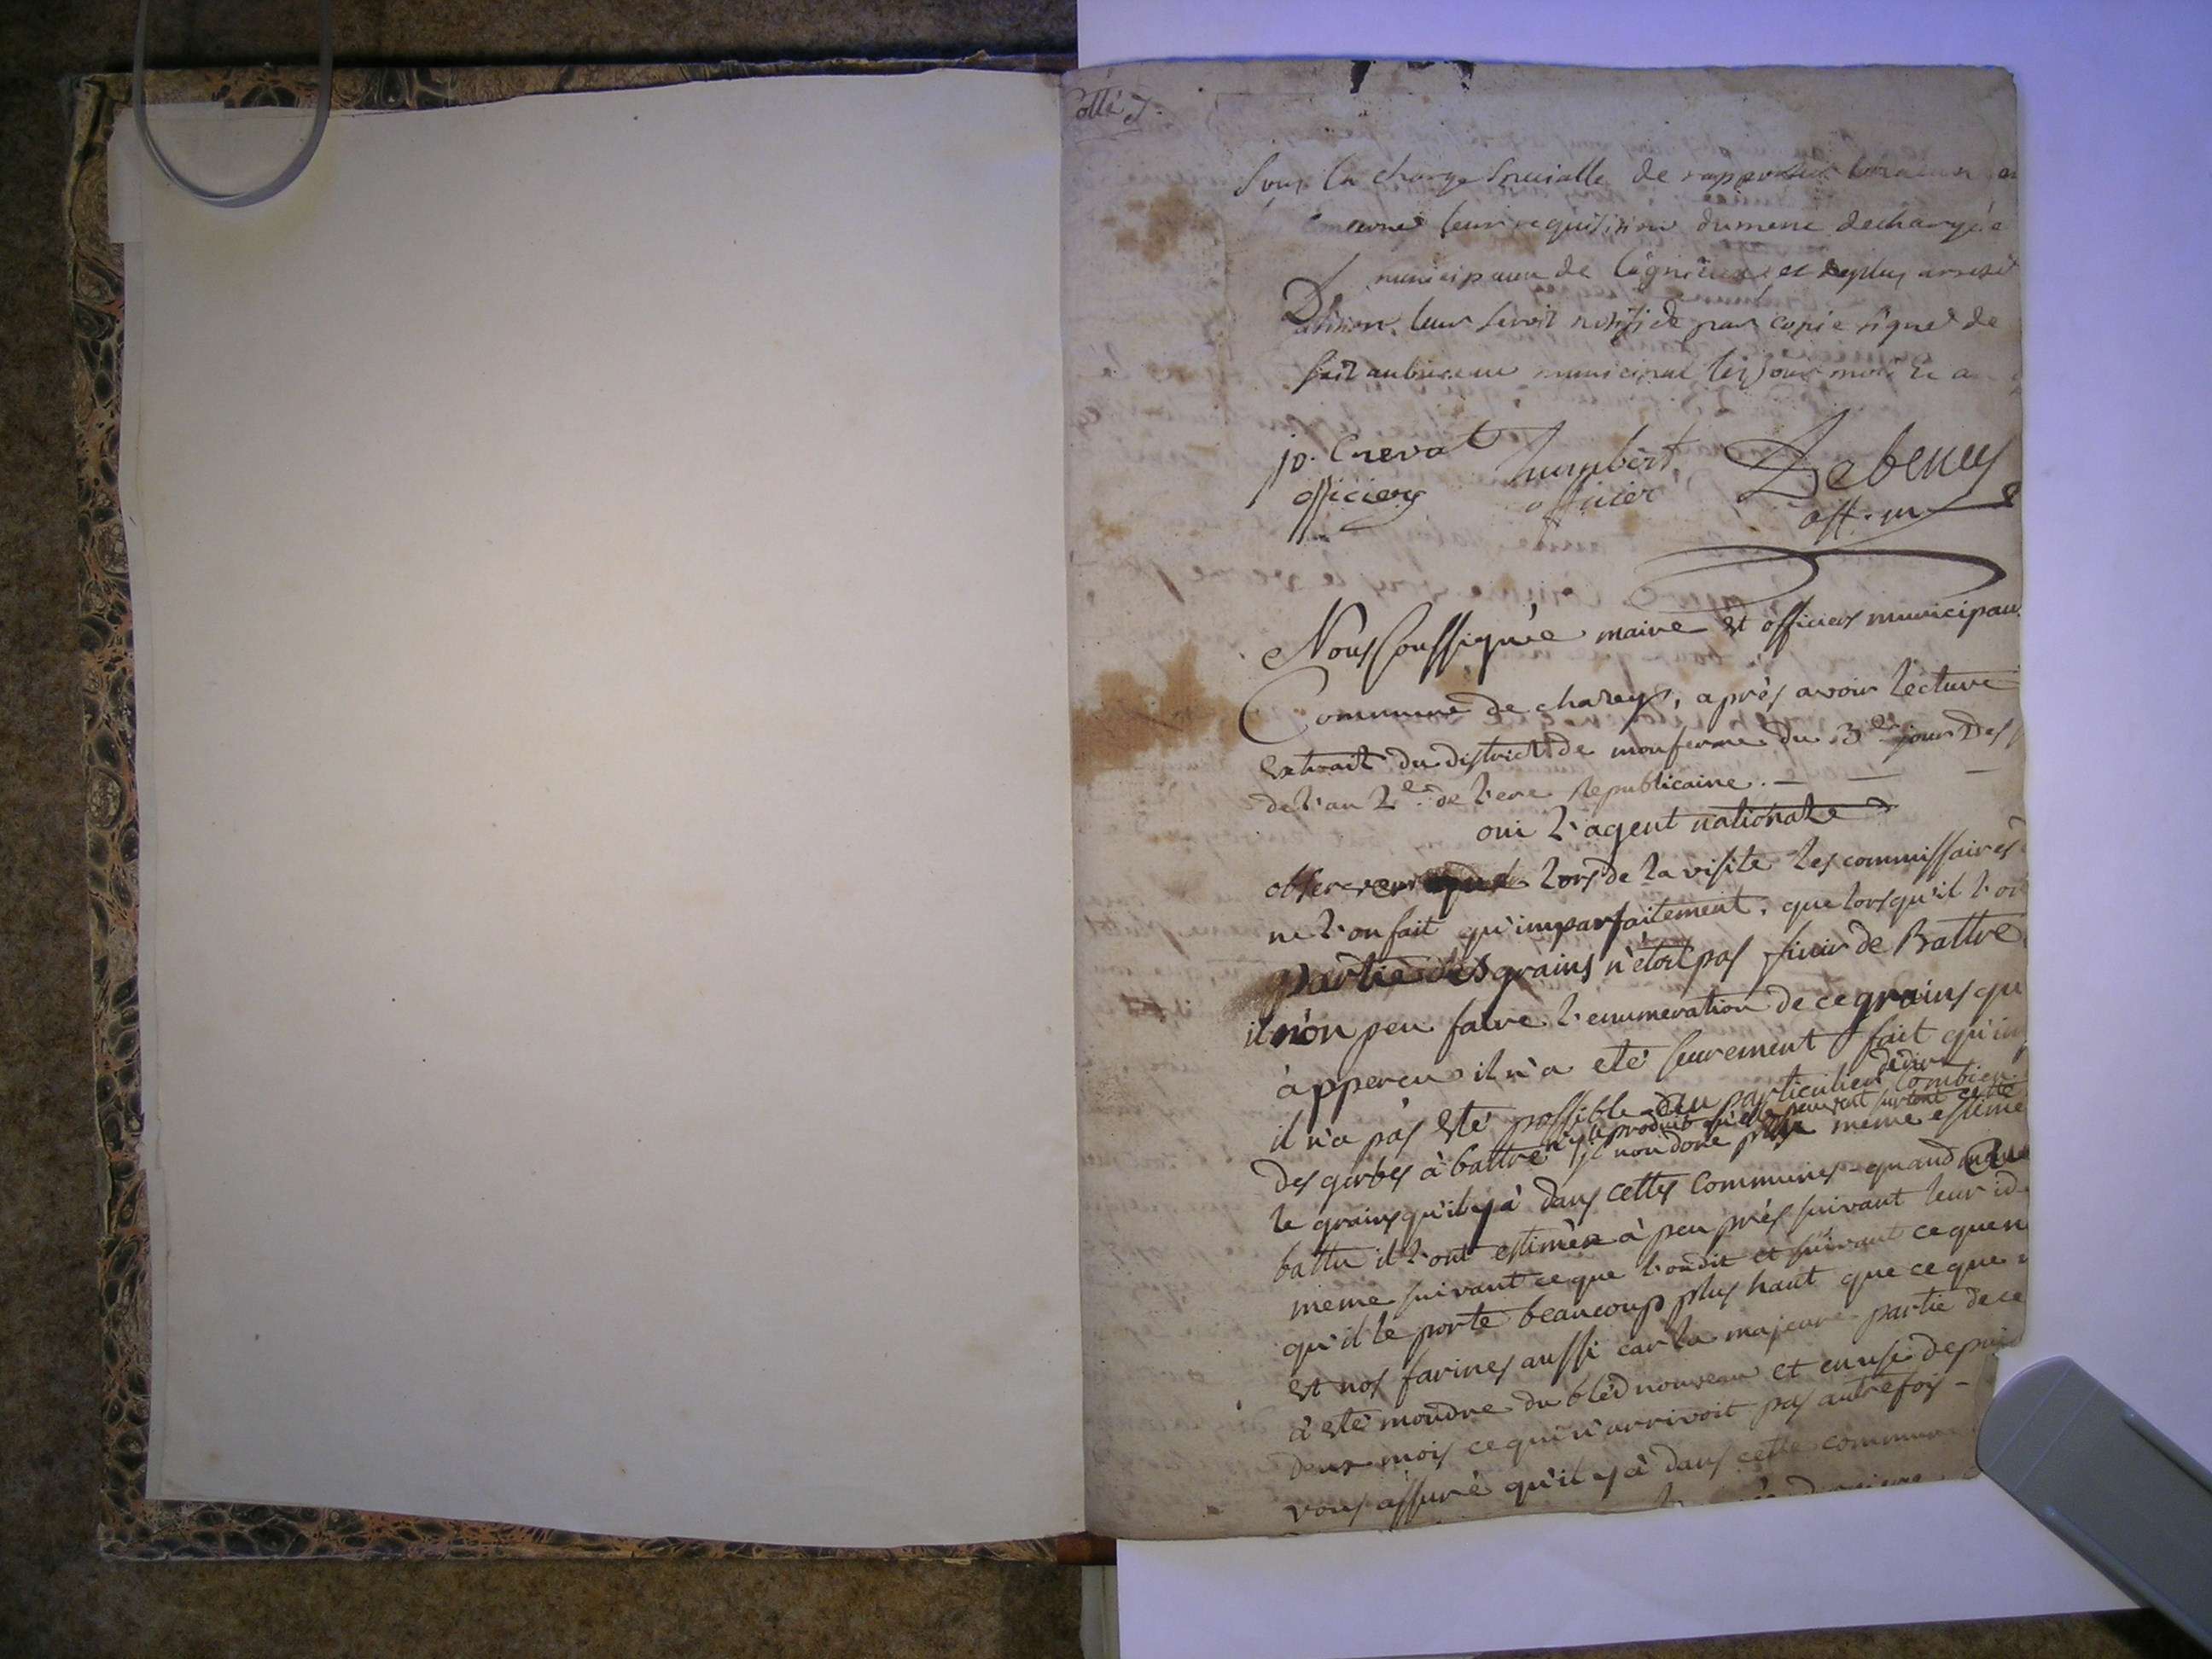 Sous la charge de rapporter
leur requisition dument dechargée
municipaux de Lagnieux, et deplus arreté
leur seroit notifide par copie signer de
fait au bureau municipal les jour mois & an
jo. Crevat humbert Debeney
officiers officier off. m
Nous soussignée maire et officiers municipau
Commune de chazey, après avoir lecture
extrait du district de monferme du 3e jour des
de l'an 2e de l'ere Republicaine. —
oui l'agent nationale
observer que lors de la visite les commissaires
ne l'on fait qu'imparfaitement, que lorsqu'il l'on
partie des grains n'étoit pas finir de Battre
il n'on peu faire l'enumeration de ce grains qu
àpperçu il n'a eté seurement fait qu'im
il n'a pas eté possible au particulier de dire combien
n'y le produit qu'elle peuvent surtout cette
des gerbes à battre il non donc pas même estime
le grains qu'il y à dans cettes Communes quand
battu il l'ont estimée à peu près suivant leur id
même suivant ce que l'on dit et suivant ce quen
qu'il le porte beaucoup plus haut que ce que
et nos farines aussi car la majeure partie de ce
à eté moudre du bléd nouveau et en usé depuis
deux mois ce qui n'arrivoit pas autrefois —
vous assuré qu'il y à dans cette commun